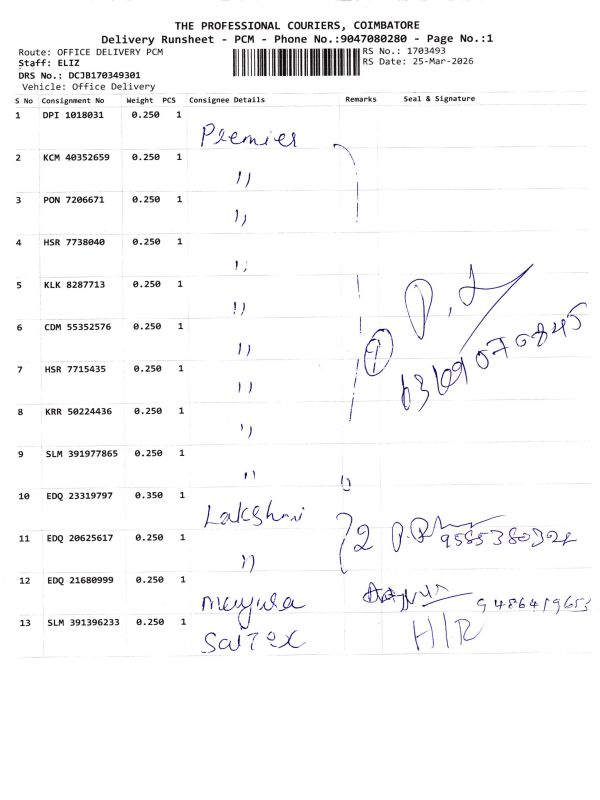 THE PROFESSIONAL COURIERS, COIMBATORE
Delivery Runsheet - PCM - Phone No.:9047080280 - Page No.:1
Route: OFFICE DELIVERY PCM RS No.: 1703493
Staff: ELIZ RS Date: 25-Mar-2026
DRS No.: DCJB170349301
Vehicle: Office Delivery
S No Consignment No Weight PCS Consignee Details Remarks Seal & Signature
1 DPI 1018031 0.250 1 Premier
2 KCM 40352659 0.250 1 ''
3 PON 7206671 0.250 1 ''
4 HSR 7738040 0.250 1 ''
5 KLK 8287713 0.250 1 ''
6 CDM 55352576 0.250 1 ''
7 HSR 7715435 0.250 1 ''
8 KRR 50224436 0.250 1 ''
9 SLM 391977865 0.250 1 ''
10 EDQ 23319797 0.350 1 Lakshmi
11 EDQ 20625617 0.250 1 '' 2
12 EDQ 21680999 0.250 1 9486419653
13 SLM 391396233 0.250 1 H/R